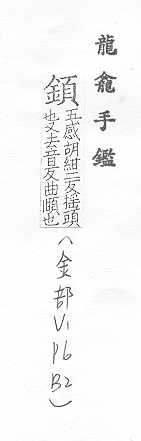 龍龕手鑑
顉
五感胡紺二反搖頭
也又去音反曲頤也
(金部V1
P6
B2)